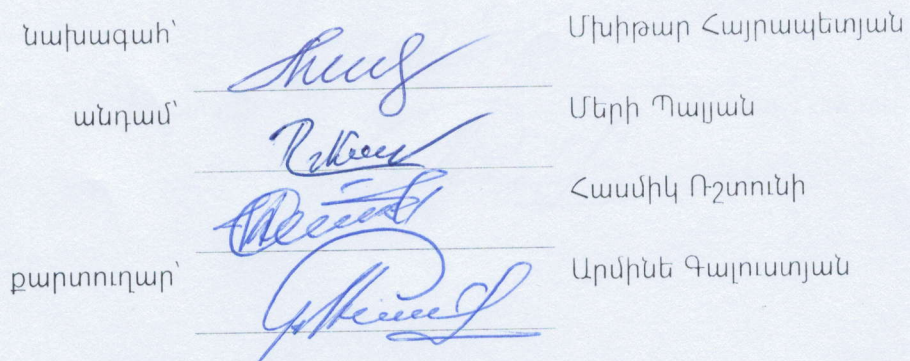 նախագահ՝ Մխիթար Հայրապետյան
անդամ՝ Մերի Պալյան
Հասմիկ Ռշտունի
քարտուղար՝ Արմինե Գալուստյան